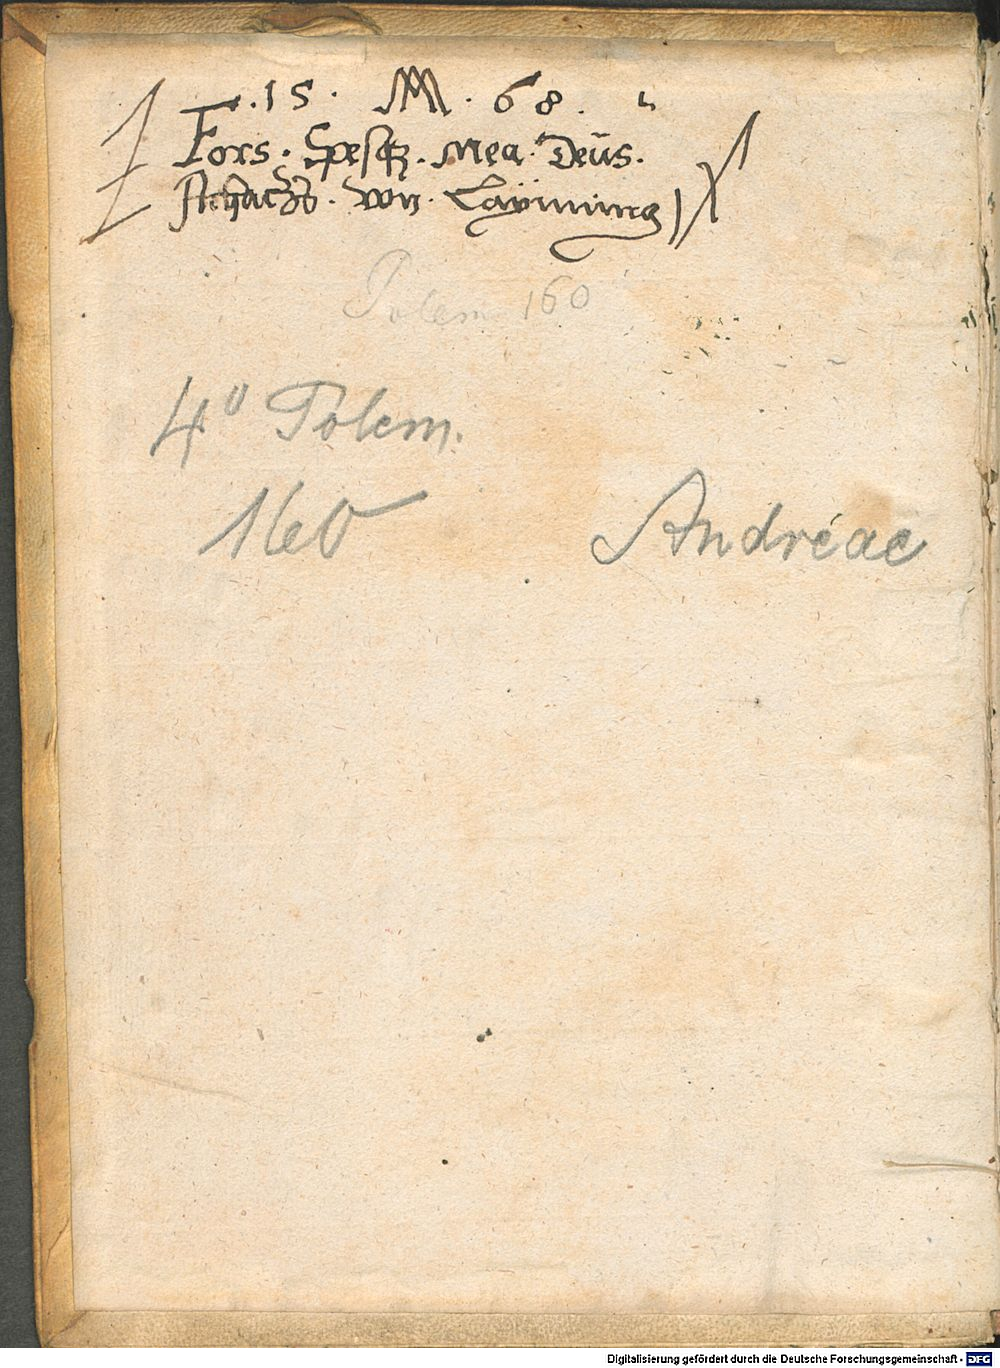 .15. M. 68.
Fors. Spesqz. Mea. Deüs.
Achatz. von. Laÿming
Polem 160
4º Polem.
160
Andreae
Digitalisierung gefördert durch die Deutsche Forschungsgemeinschaft - DFG